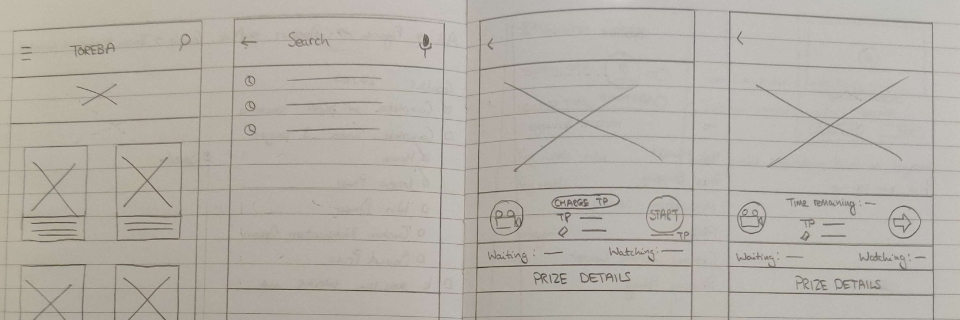 TOREBA
Search
CHARGE TP
TP
START
TP
Waiting: Watching:
PRIZE DETAILS
Time remaining:
TP
Waiting: Watching:
PRIZE DETAILS